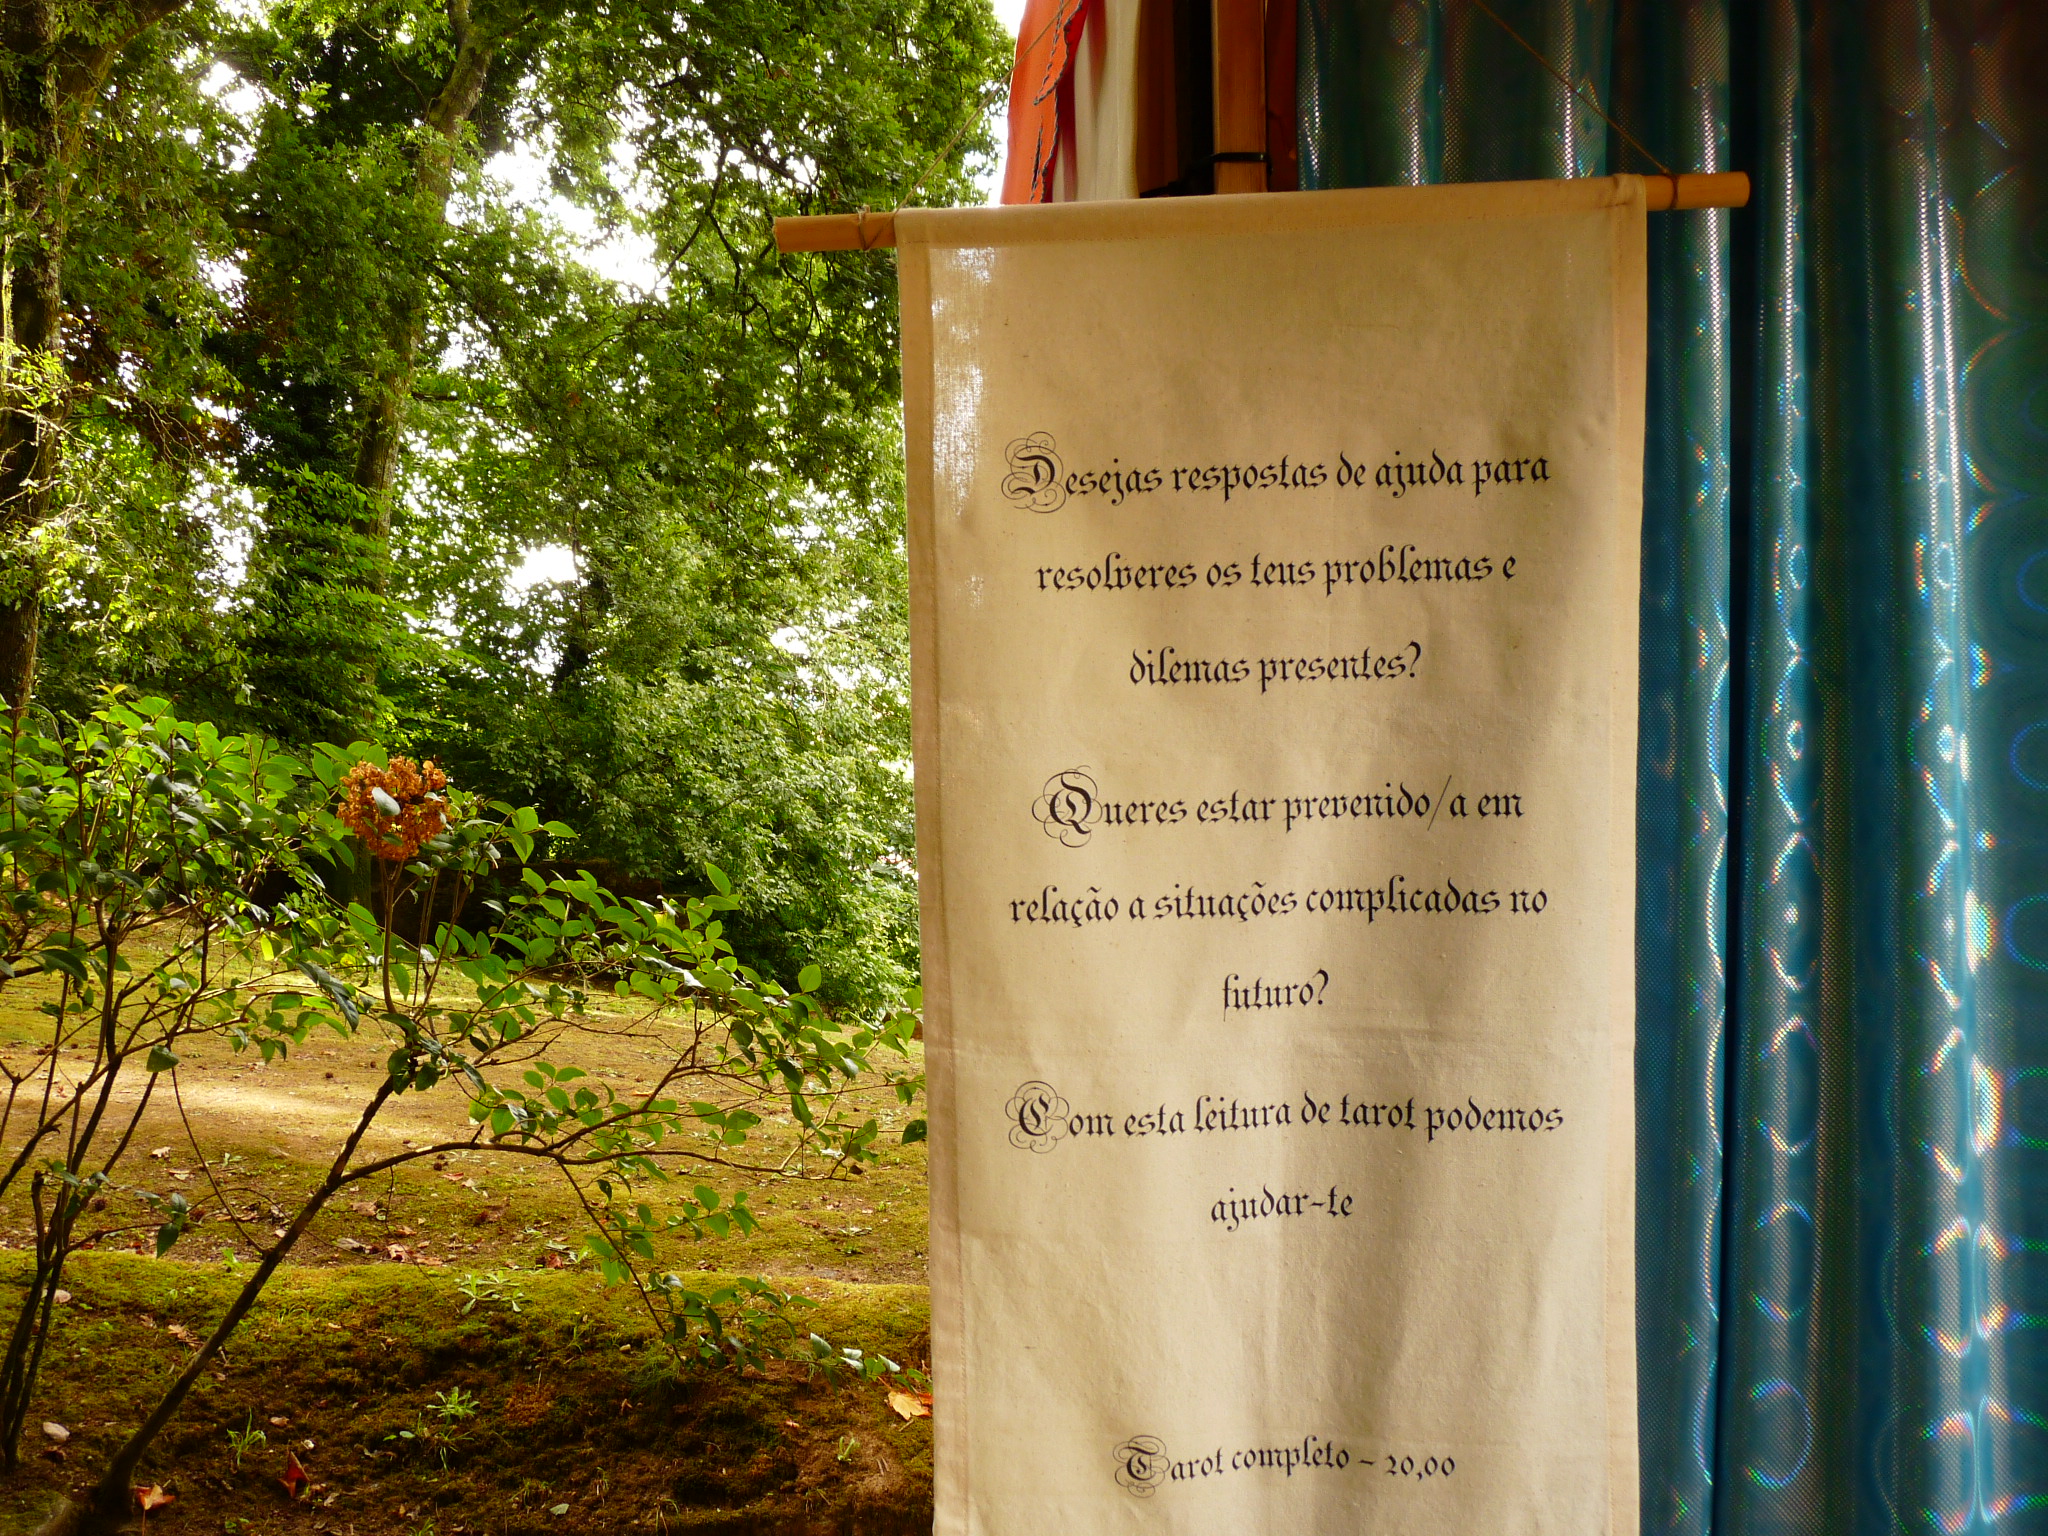 Desejas respostas de ajuda para
resolveres os teus problemas e
dilemas presentes?
Queres estar prevenido/a em
relação a situações complicadas no
futuro?
Com esta leitura de tarot podemos
ajudar-te
Tarot completo - 20,00